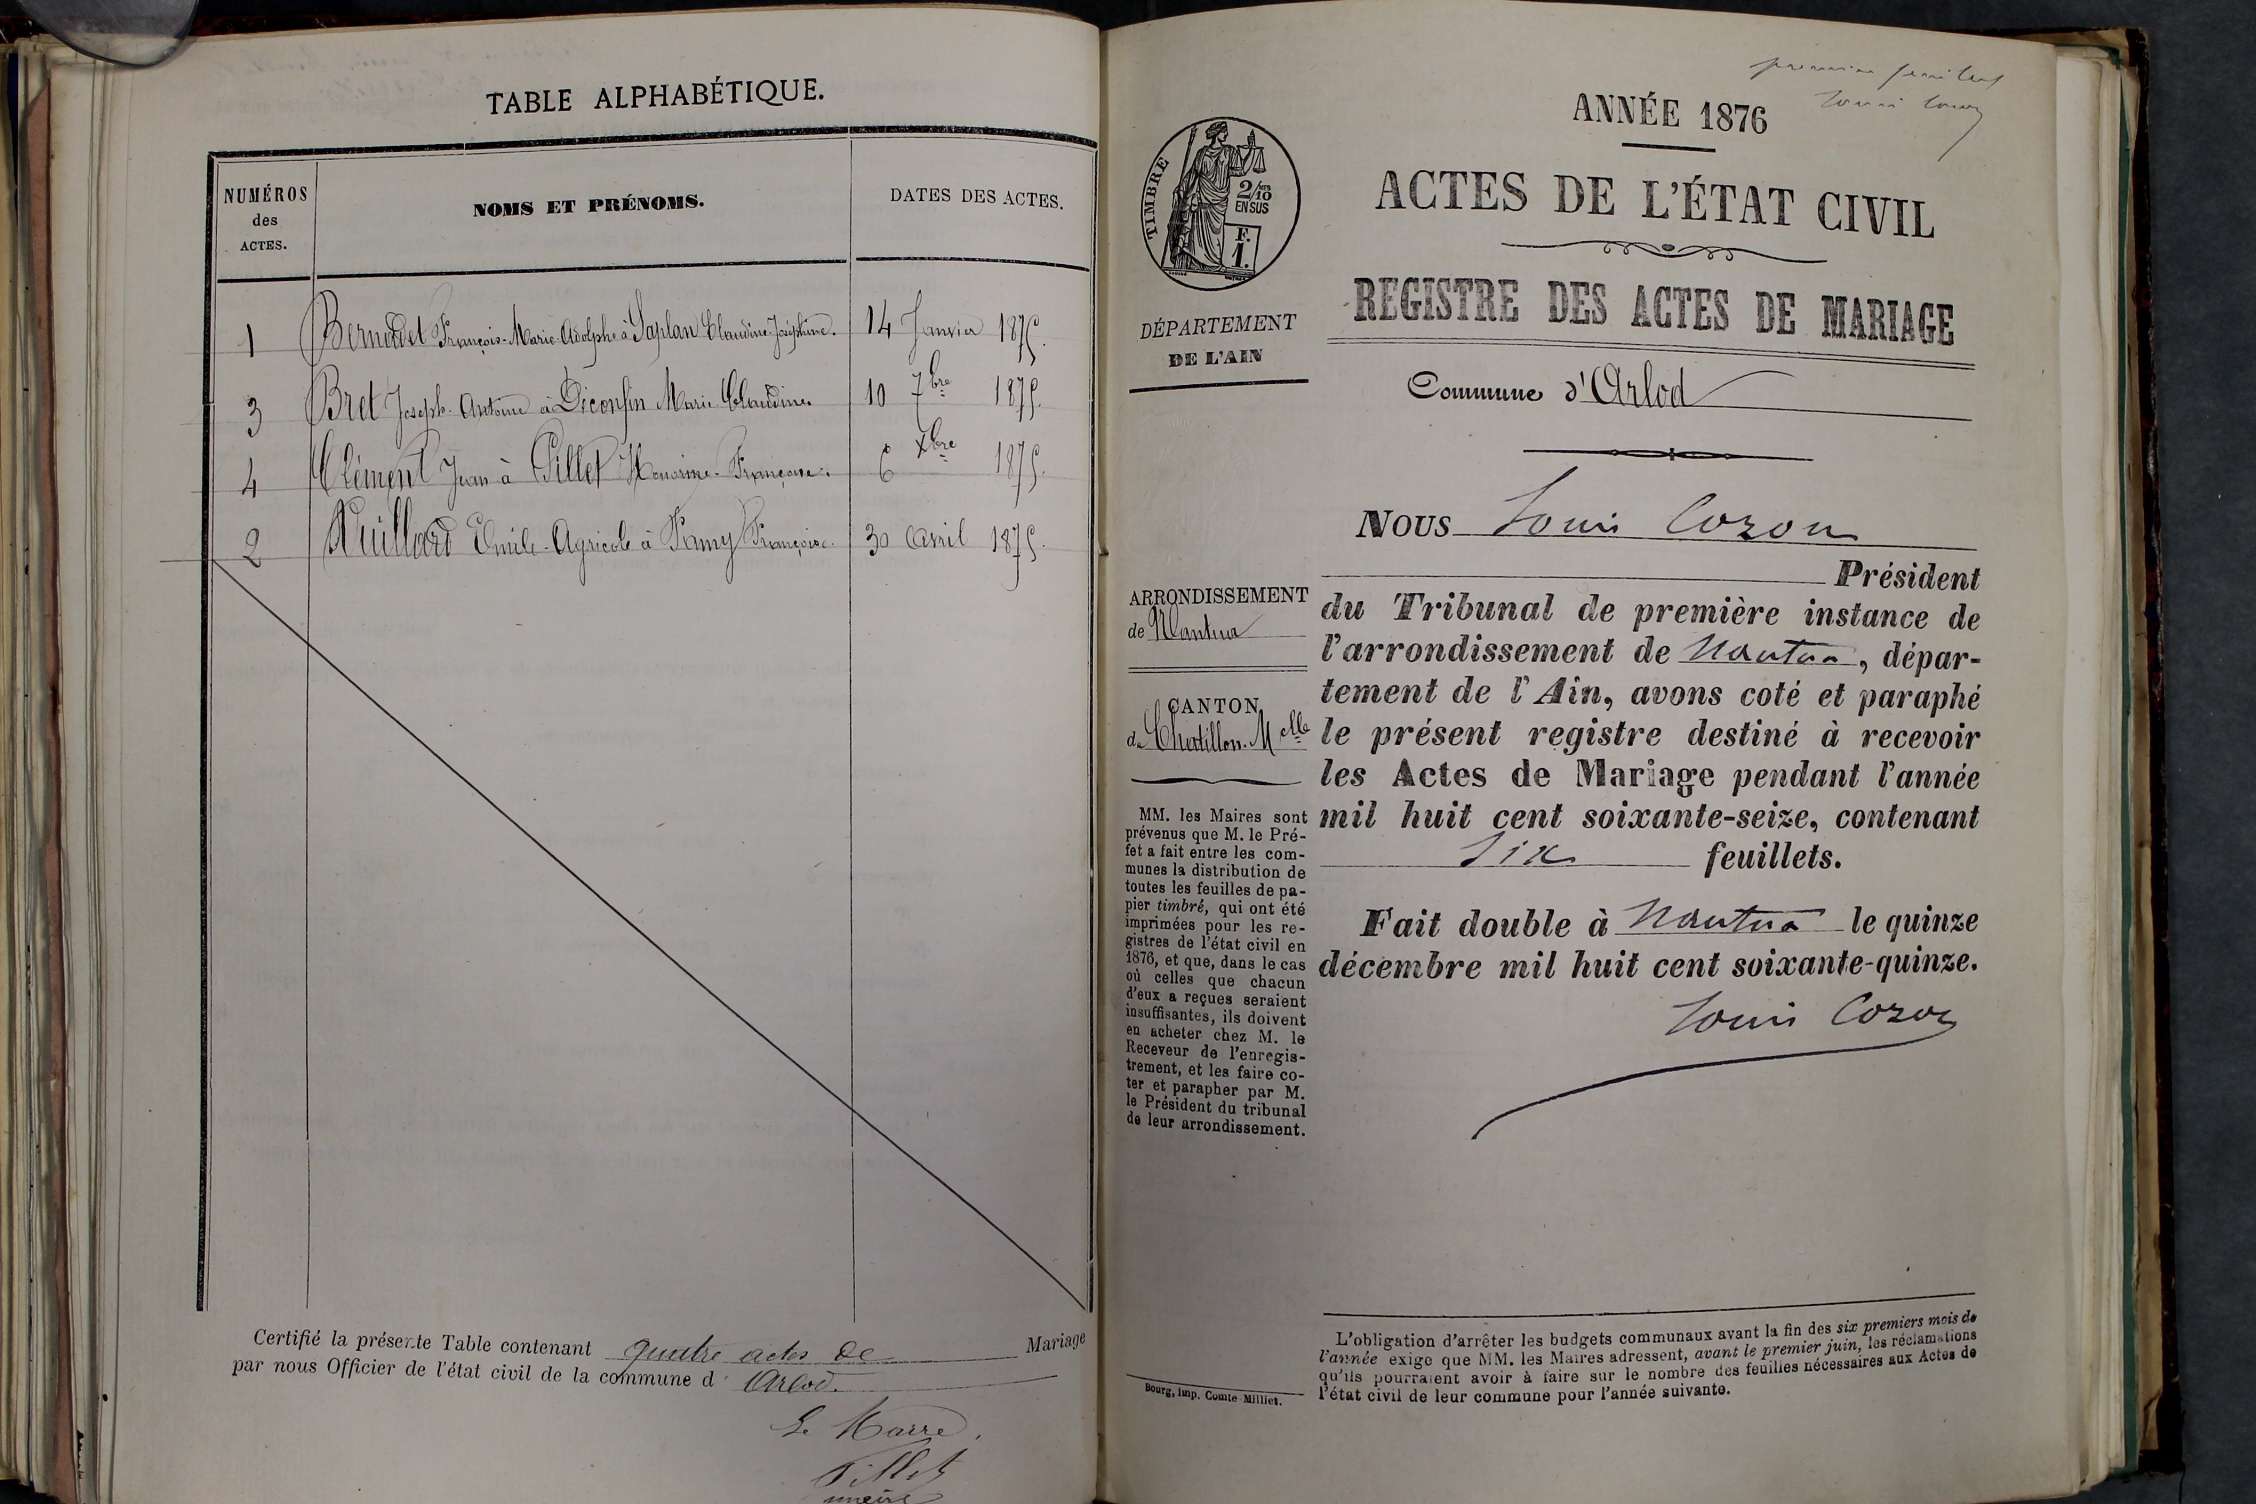 TABLE ALPHABÉTIQUE.
NUMÉROS des ACTES.
NOMS ET PRÉNOMS.
DATES DES ACTES.
1 Bernadet François-Marie-Adolphe à Saplan Claudine-Joséphine. 14 Janvier 1875.
3 Bret Joseph-Antoine à Diconfin Marie Claudine 10 7bre 1875.
4 Clément Jean à Pillet Honorine-Françoise. 6 Xbre 1875.
2 Vuillard Emile-Agricole à Famy Françoise. 30 Avril 1875.
Certifié la présente Table contenant quatre actes de Mariage
par nous Officier de l'état civil de la commune d' Arlod.
Le Maire
Pillet
maire
premier feuillet
Louis Cozon
ANNÉE 1876
ACTES DE L'ÉTAT CIVIL
REGISTRE DES ACTES DE MARIAGE
TIMBRE
2/10
EN SUS
F.
1.
DÉPARTEMENT
DE L'AIN
Commune d'Arlod
NOUS Louis Cozon
Président
du Tribunal de première instance de
l'arrondissement de Nantua, dépar-
tement de l'Ain, avons coté et paraphé
le présent registre destiné à recevoir
les Actes de Mariage pendant l'année
mil huit cent soixante-seize, contenant
six feuillets.
Fait double à Nantua le quinze
décembre mil huit cent soixante-quinze.
Louis Cozon
ARRONDISSEMENT
de Nantua
CANTON
de Chatillon-Mclle
MM. les Maires sont
prévenus que M. le Pré-
fet a fait entre les com-
munes la distribution de
toutes les feuilles de pa-
pier timbré, qui ont été
imprimées pour les re-
gistres de l'état civil en
1876, et que, dans le cas
où celles que chacun
d'eux a reçues seraient
insuffisantes, ils doivent
en acheter chez M. le
Receveur de l'enregis-
trement, et les faire co-
ter et parapher par M.
le Président du tribunal
de leur arrondissement.
L'obligation d'arrêter les budgets communaux avant la fin des six premiers mois de
l'année exige que MM. les Maires adressent, avant le premier juin, les réclamations
qu'ils pourraient avoir à faire sur le nombre des feuilles nécessaires aux Actes de
l'état civil de leur commune pour l'année suivante.
Bourg, imp. Comte-Milliet.